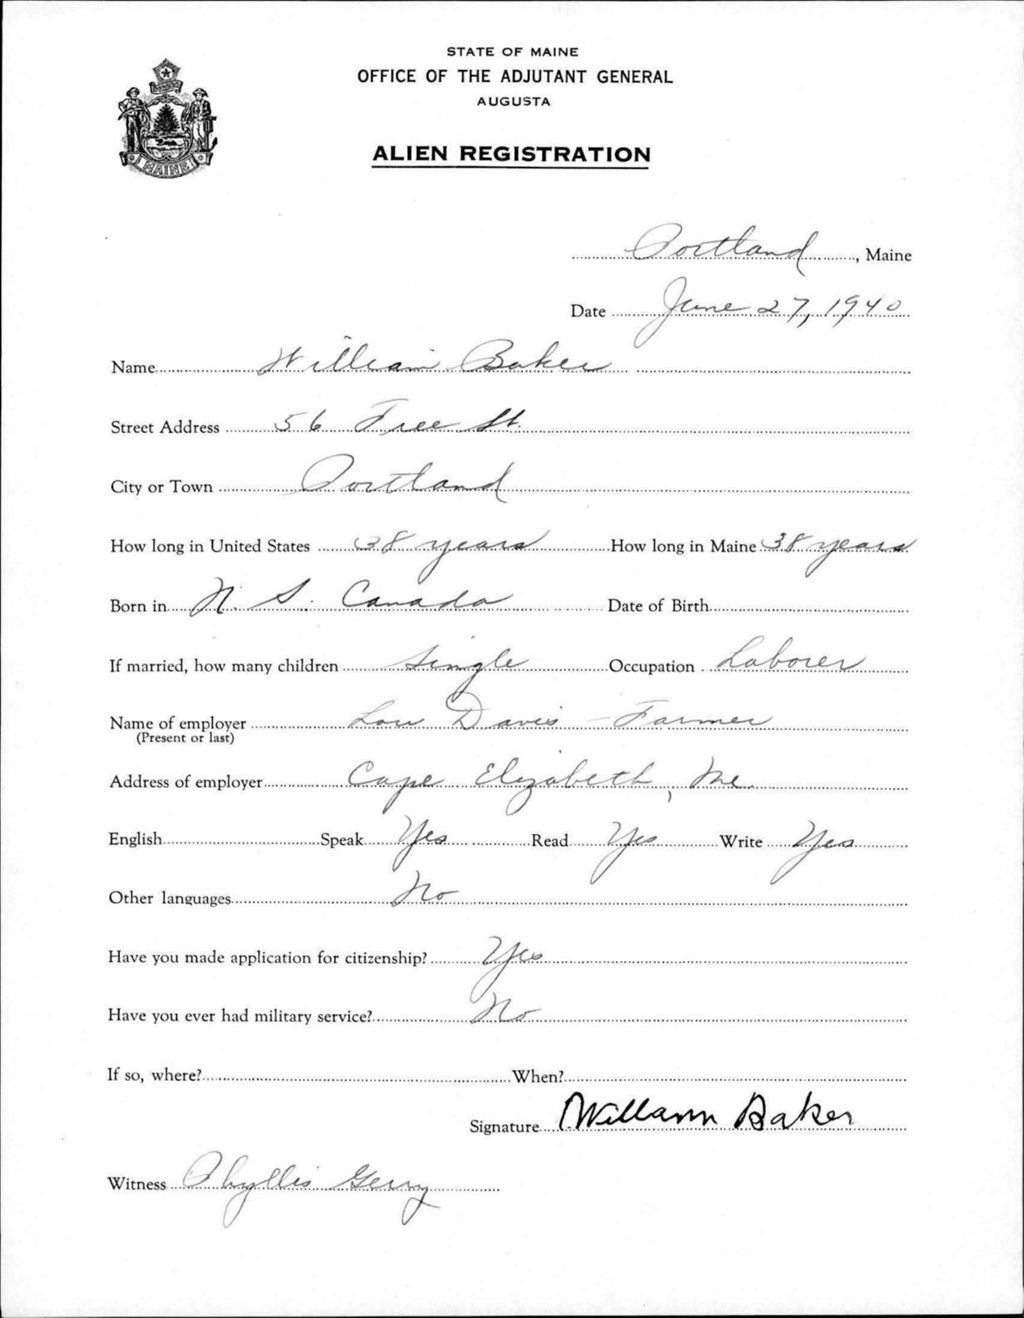 STATE OF MAINE
OFFICE OF THE ADJUTANT GENERAL
AUGUSTA
ALIEN REGISTRATION
MAINE
Portland, Maine
Date June 27, 1940
Name William Baker
Street Address 56 Free St.
City or Town Portland
How long in United States 38 years How long in Maine 38 years
Born in N. S. Canada Date of Birth
If married, how many children Single Occupation Laborer
Name of employer Lou Davis - Farmer
(Present or last)
Address of employer Cape Elizabeth, Me.
English Speak Yes Read Yes Write Yes
Other languages No
Have you made application for citizenship? Yes
Have you ever had military service? No
If so, where? When?
Signature Willann Baker
Witness Phyllis Gerry